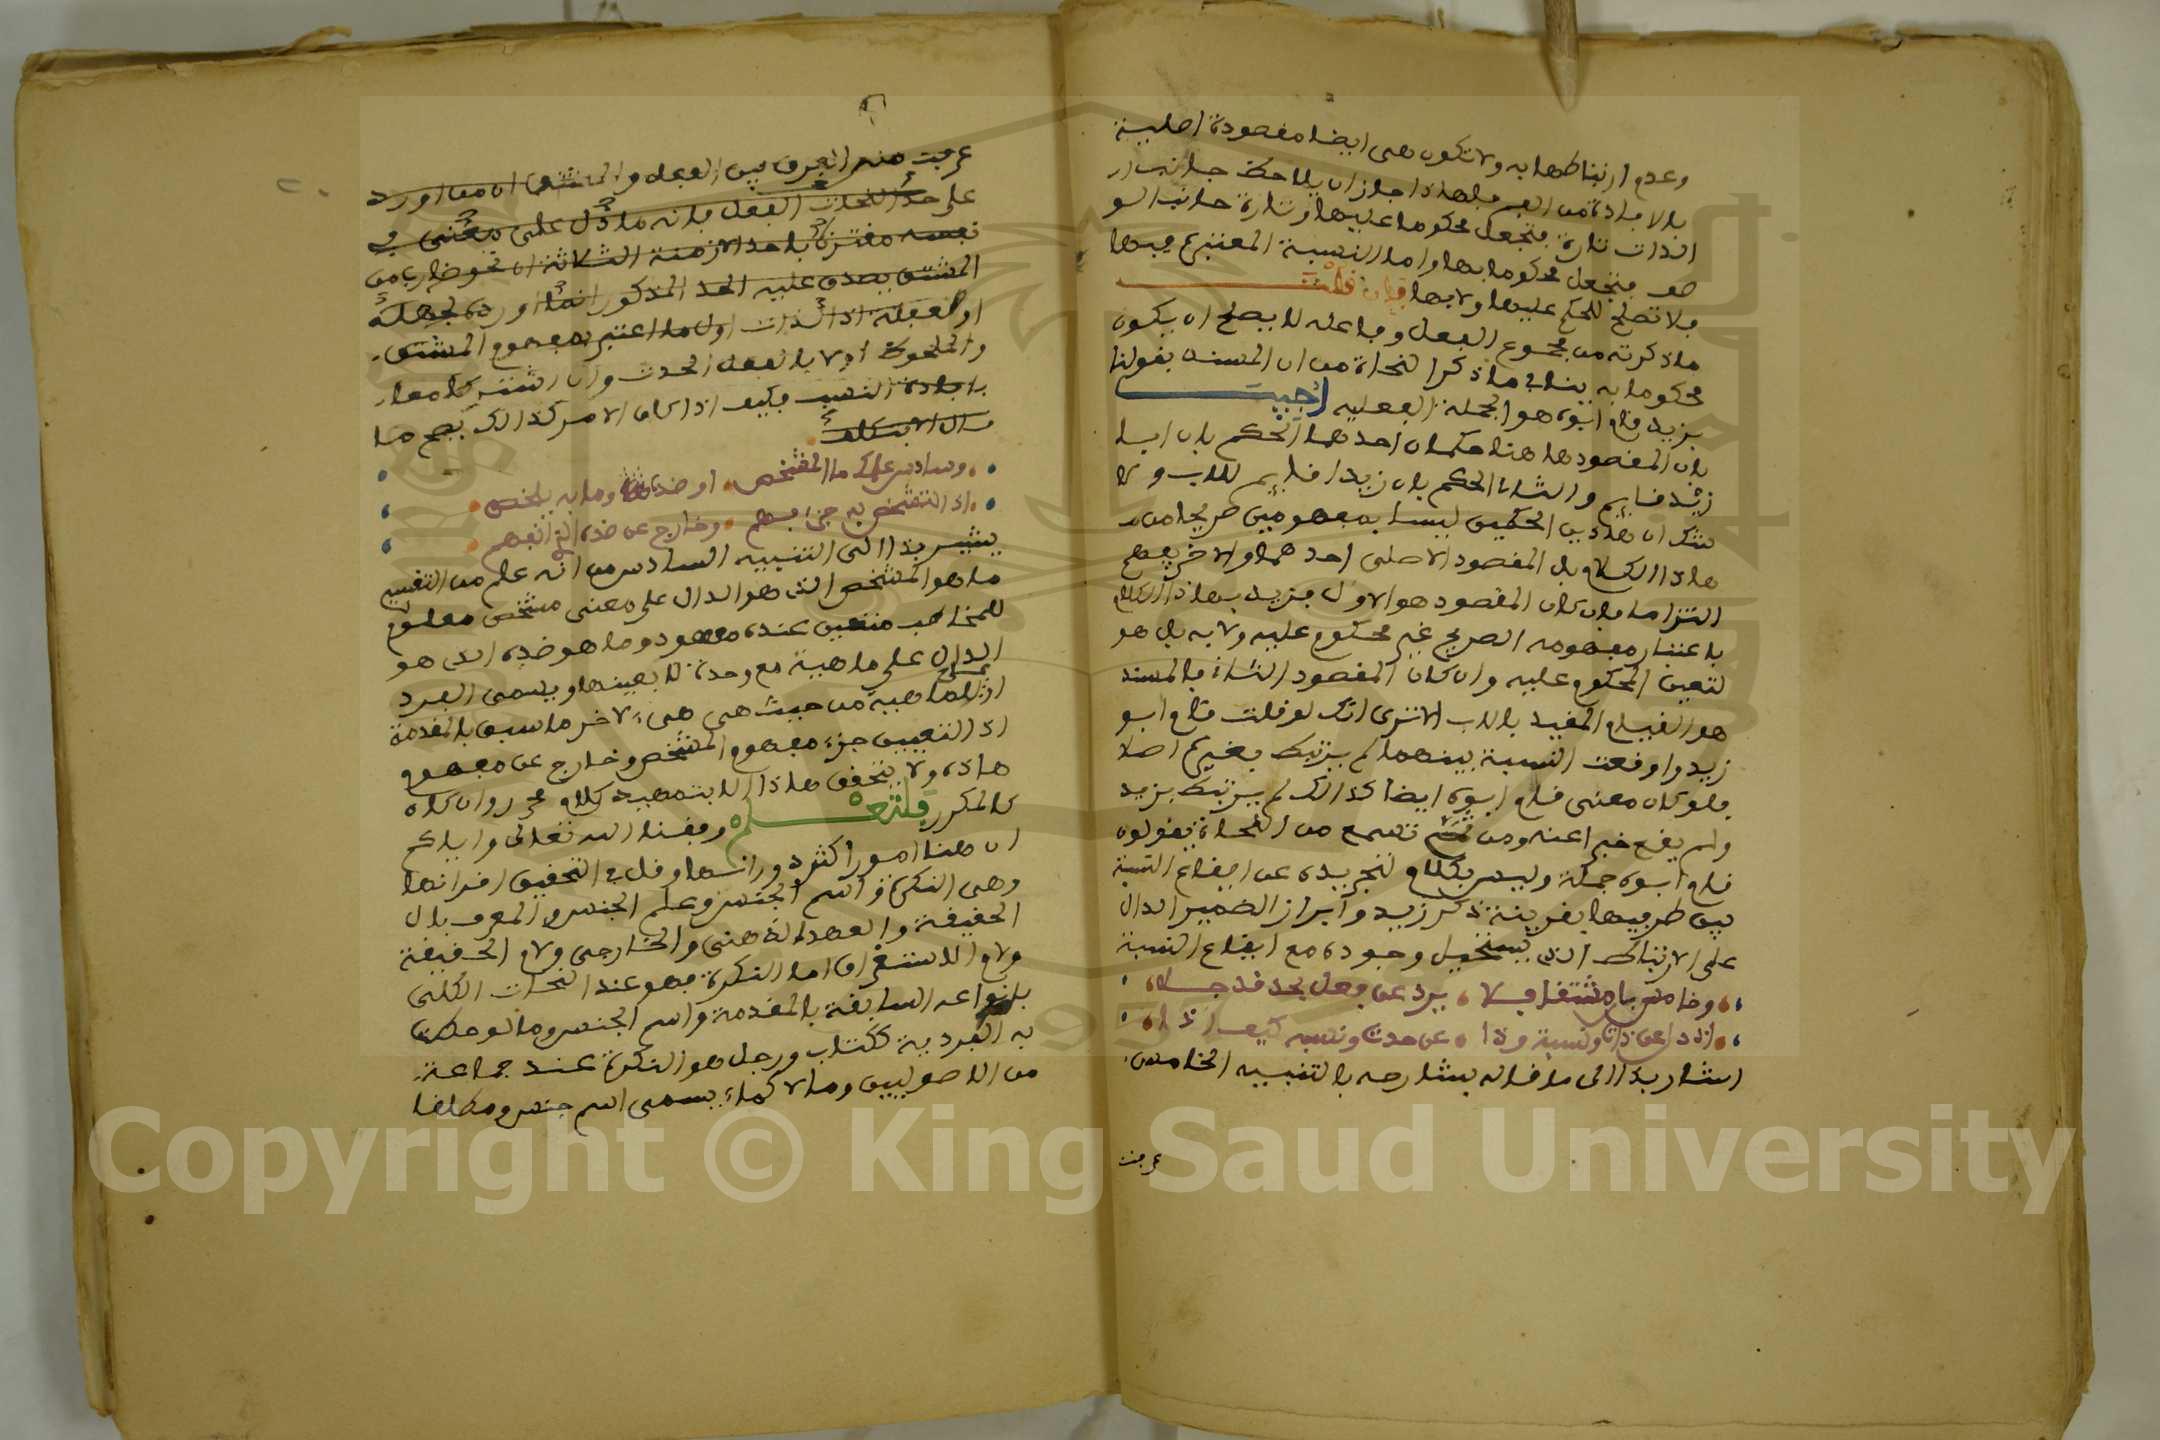 وعدم ارتباطها به ولا تكون هي ايضا مقصودة اصلية
بالافادة من الغير فلهاذا جاز ان يلاحظ جانب ار
الذات تارة فتجعل محكوما عليها وتارة جانب الو
صف فتجعل محكوما بها واما النسبة المعتبرة فيها
فلا تصلح للحكم عليها ولا بها فإن قلت
ما ذكرته من مجموع الفعل وفاعله لا يصلح ان يكون
محكوما به ينافي ما ذكر النحاة من ان المسند بقولنا
بزيد قام ابوه هو الجملة الفعليه اجيب
بان المقصود هاهنا حكمان احدهما الحكم بان ابا
زيد قايم والثاني الحكم بان زيدا قايم للاب ولا
شك ان هاذين الحكمين ليسا بمفهومين صريحا من
هاذا الكلام بل المقصود الاصلي احدهما والاخر يفهم
التزاما فان كان المقصود هو الاول فزيد بهاذا الكلام
باعتبار مفهومه الصريح غير محكوم عليه ولا به بل هو
لتعيين المحكوم عليه وان كان المقصود الثاني فالمسند
هو القيام المقيد بالاب الا ترى انك لو قلت قام ابو
زيد واوقعت النسبة بينهما لم يرتبط بغيره اصلا
فلو كان معنى قام ابوه ايضا كذالك لم يرتبط بزيد
ولم يقع خبرا عنه ومن ثم تسمع من النحاة يقولون
قام ابوه جملة وليس بكلام لتجريده عن ايقاع النسبة
بين طرفيها بقرينة ذكر زيد وايراز الضمير الدال
على الارتباط الذي يستحيل وجوده مع ايقاع النسبة
وخامس بان مشتقا فلا يرد عن فعل بحد قد جلا
اذ دل عن ذات ونسبة وذا عن حدث ونسبه كيف اذا
اشار بذا الى ما قاله بشارحه بالتنبيه الخامس
عرفت
عرفت منه الفرق بين الفعل والمشتق ان من اورد
على حد النحات الفعل بانه ما دل على معنى في
نفسه مقترنا باحد الازمنة الثلاثة ان نحو ضارب من
المشتق يصدق عليه الحد المذكور انما اورده لجهله
او لغفله اذ الذات اول ما اعتبر بمفهوم المشتق
والملحوظ اولا بالفعل الحدث وان اشتركا معا
بافادة النسب فكيف اذا كان الامر كذالك يصح ما
سال الا بتكلف
وسادس علمك ما المشخص او ضده وما به يلخص
اذ التشخص به جزا فهم وخارج عن ضده انفهم
يشير بذا الى التنبيه السادس من انه علم من التقسيم
ما هو المشخص الذي هو الدال على معنى مشخص معلوم
للمخاطب متعين عنده معهود وما هو ضده الذي هو
الدال على ماهية مع وحدة لا بعينها ويسمى الفرد
او للماهية من حيث هي هي لاخر ما سبق بالمقدمة
اذ التعيين جزء مفهوم المشخص وخارج عن مفهوم
هاذه ولا يتحقق هاذا الا بتمهيد كلام محرر وان كان
كالمكرر فلتعلم وفقنا الله تعالى واياكم
ان هنا امورا كثر دورانها وقل في التحقيق اقرانها
وهي النكرة واسم الجنس وعلم الجنس والمعرف بال
الحقيقة والعهد الذهني والخارجي ولام الحقيقة
ولام الاستغراق اما النكرة فهو عند النحات الكلي
بانواعه السابقة بالمقدمة واسم الجنس وما لوحظت
به الفردية ككتاب ورجل هو النكرة عند جماعة
من الاصوليين وما لا كماء يسمى اسم جنس ومطلقا
Copyright © King Saud University